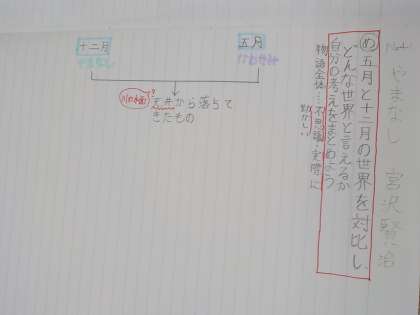 やまなし 宮沢賢治
め 五月と十二月の世界を対比し、
どんな世界と言えるか
自分の考えをまとめよう
物語全体…不思議・実際に
五月
かわせみ
十二月
やまなし
天井から落ちて
きたもの